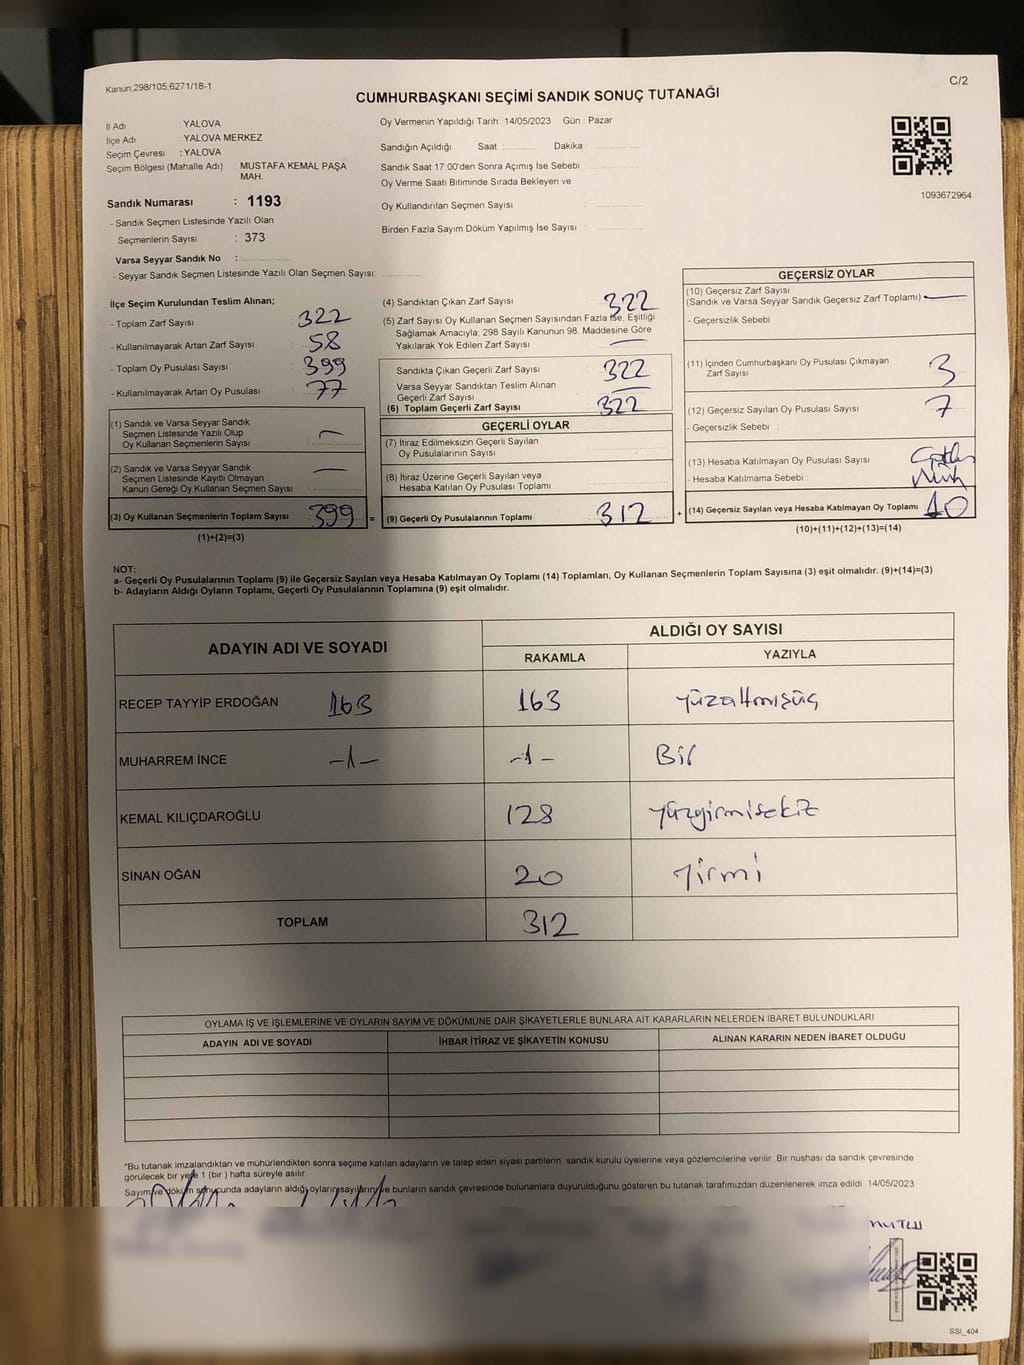 Kanun:298/105,6271/18-1
C/2
CUMHURBAŞKANI SEÇİMİ SANDIK SONUÇ TUTANAĞI
İl Adı : YALOVA
İlçe Adı : YALOVA MERKEZ
Seçim Çevresi : YALOVA
Seçim Bölgesi (Mahalle Adı) : MUSTAFA KEMAL PAŞA
MAH.
Sandık Numarası : 1193
- Sandık Seçmen Listesinde Yazılı Olan
Seçmenlerin Sayısı : 373
Varsa Seyyar Sandık No :
- Seyyar Sandık Seçmen Listesinde Yazılı Olan Seçmen Sayısı:
Oy Vermenin Yapıldığı Tarih 14/05/2023 Gün : Pazar
Sandığın Açıldığı Saat : Dakika :
Sandık Saat 17:00'den Sonra Açımış İse Sebebi
Oy Verme Saati Bitiminde Sırada Bekleyen ve
Oy Kullandırılan Seçmen Sayısı :
Birden Fazla Sayım Döküm Yapılmış İse Sayısı :
1093672964
İlçe Seçim Kurulundan Teslim Alınan;
- Toplam Zarf Sayısı : 322
- Kullanılmayarak Artan Zarf Sayısı : 58
- Toplam Oy Pusulası Sayısı : 399
- Kullanılmayarak Artan Oy Pusulası : 77
(1) Sandık ve Varsa Seyyar Sandık
Seçmen Listesinde Yazılı Olup
Oy Kullanan Seçmenlerin Sayısı : —
(2) Sandık ve Varsa Seyyar Sandık
Seçmen Listesinde Kayıtlı Olmayan
Kanun Gereği Oy Kullanan Seçmen Sayısı : —
(3) Oy Kullanan Seçmenlerin Toplam Sayısı 399 =
(1)+(2)=(3)
(4) Sandıktan Çıkan Zarf Sayısı : 322
(5) Zarf Sayısı Oy Kullanan Seçmen Sayısından Fazla İse, Eşitliği
Sağlamak Amacıyla, 298 Sayılı Kanunun 98. Maddesine Göre
Yakılarak Yok Edilen Zarf Sayısı : —
Sandıkta Çıkan Geçerli Zarf Sayısı : 322
Varsa Seyyar Sandıktan Teslim Alınan
Geçerli Zarf Sayısı : —
(6) Toplam Geçerli Zarf Sayısı : 322
GEÇERLİ OYLAR
(7) İtiraz Edilmeksizin Geçerli Sayılan
Oy Pusulalarının Sayısı :
(8) İtiraz Üzerine Geçerli Sayılan veya
Hesaba Katılan Oy Pusulası Toplamı :
(9) Geçerli Oy Pusulalarının Toplamı : 312 +
GEÇERSİZ OYLAR
(10) Geçersiz Zarf Sayısı
(Sandık ve Varsa Seyyar Sandık Geçersiz Zarf Toplamı) : —
- Geçersizlik Sebebi :
(11) İçinden Cumhurbaşkanı Oy Pusulası Çıkmayan
Zarf Sayısı : 3
(12) Geçersiz Sayılan Oy Pusulası Sayısı : 7
- Geçersizlik Sebebi :
(13) Hesaba Katılmayan Oy Pusulası Sayısı :
- Hesaba Katılmama Sebebi :
(14) Geçersiz Sayılan veya Hesaba Katılmayan Oy Toplamı 10
(10)+(11)+(12)+(13)=(14)
NOT:
a- Geçerli Oy Pusulalarının Toplamı (9) ile Geçersiz Sayılan veya Hesaba Katılmayan Oy Toplamı (14) Toplamları, Oy Kullanan Seçmenlerin Toplam Sayısına (3) eşit olmalıdır. (9)+(14)=(3)
b- Adayların Aldığı Oyların Toplamı, Geçerli Oy Pusulalarının Toplamına (9) eşit olmalıdır.
ADAYIN ADI VE SOYADI
ALDIĞI OY SAYISI
RAKAMLA
YAZIYLA
RECEP TAYYİP ERDOĞAN 163 163 yüzaltmışüç
MUHARREM İNCE -1- -1- Bir
KEMAL KILIÇDAROĞLU 128 yüzyirmisekiz
SİNAN OĞAN 20 yirmi
TOPLAM 312
OYLAMA İŞ VE İŞLEMLERİNE VE OYLARIN SAYIM VE DÖKÜMÜNE DAİR ŞİKAYETLERLE BUNLARA AİT KARARLARIN NELERDEN İBARET BULUNDUKLARI
ADAYIN ADI VE SOYADI
İHBAR İTİRAZ VE ŞİKAYETİN KONUSU
ALINAN KARARIN NEDEN İBARET OLDUĞU
*Bu tutanak imzalandıktan ve mühürlendikten sonra seçime katılan adayların ve talep eden siyasi partilerin sandık kurulu üyelerine veya gözlemcilerine verilir. Bir nüshası da sandık çevresinde
görülecek bir yere 1 (bir ) hafta süreyle asılır.
Sayım ve döküm sonucunda adayların aldığı oyların sayılarını ve bunların sandık çevresinde bulunanlara duyurulduğunu gösteren bu tutanak tarafımızdan düzenlenerek imza edildi 14/05/2023
MUTLU
SSI_404